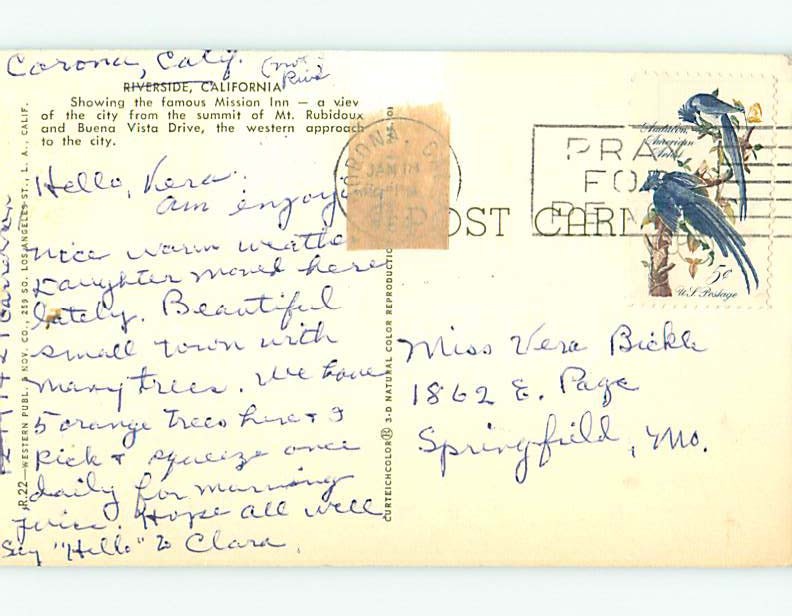 Corona, Calif. (not
Riv.
RIVERSIDE, CALIFORNIA
Showing the famous Mission Inn — a view
of the city from the summit of Mt. Rubidoux
and Buena Vista Drive, the western approach
to the city.
Hello, Vera.
am enjoyi
nice warm weathe
Daughter moved here
lately. Beautiful
small town with
many trees. We have
5 orange trees here & I
pick & squeeze once
daily for morning
juice. Hope all well
Say "Hello" to Clara.
R.22—WESTERN PUBL. & NOV. CO., 259 SO. LOS ANGELES ST., L. A., CALIF.
CURTEICHCOLOR 3-D NATURAL COLOR REPRODUCTIO
CORONA, CAL
JAN 18
PRAY
FO
PE
POST CARD
Audubon
American
Artist
5¢
U.S. Postage
Miss Vera Bickle
1862 E. Page
Springfield, Mo.